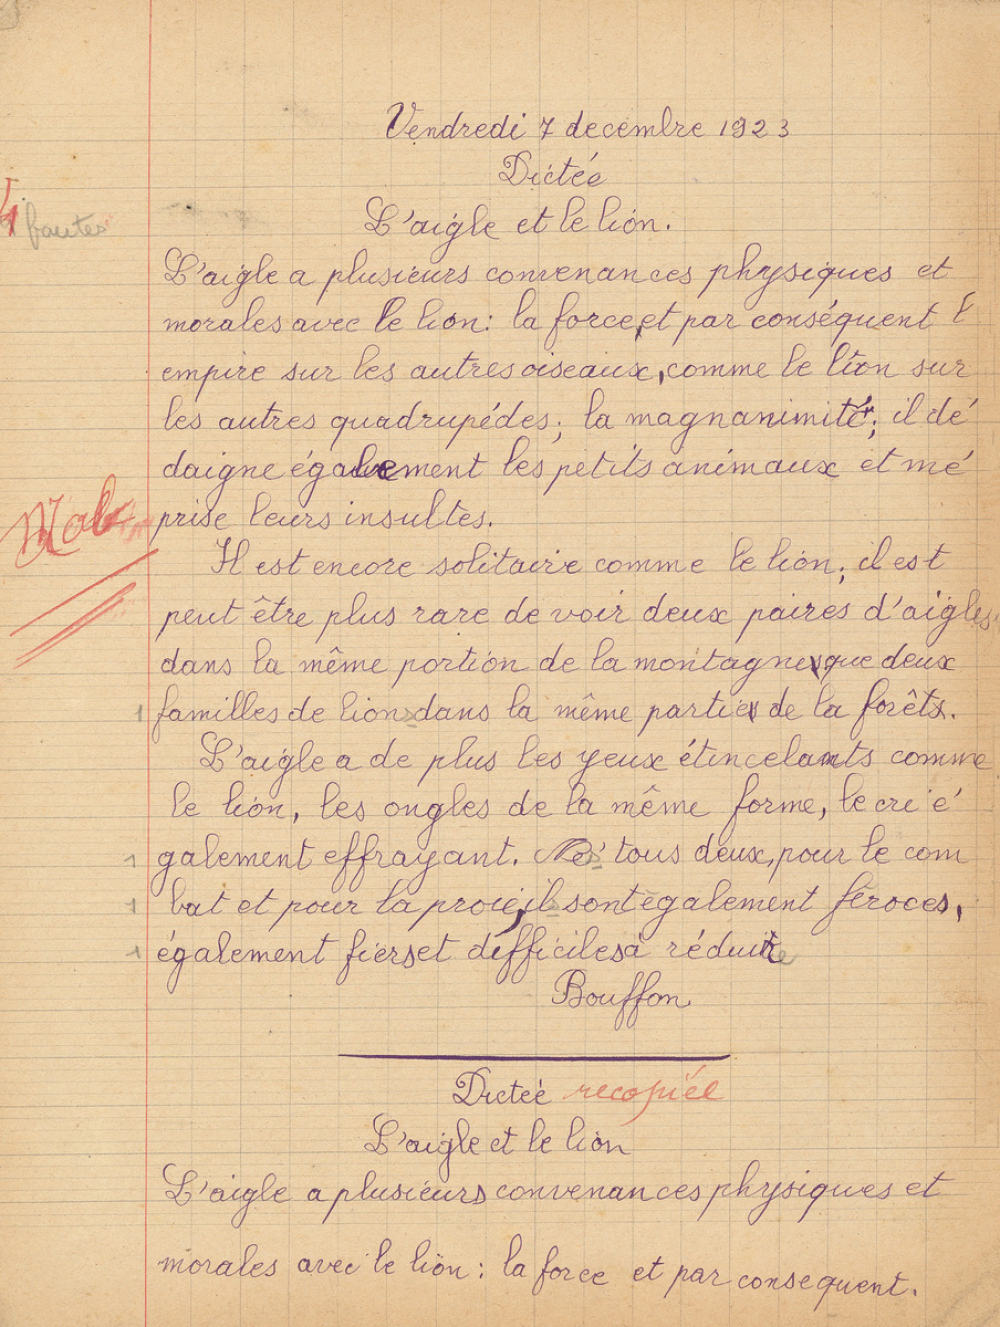 Vendredi 7 decembre 1923
Dictée
L'aigle et le lion.
4 fautes
L'aigle a plusieurs convenances physiques et
morales avec le lion: la force, et par conséquent l'
empire sur les autres oiseaux, comme le lion sur
les autres quadrupédes; la magnanimité; il dé
daigne également les petits animaux et mé
Mal
prise leurs insultes.
Il est encore solitaire comme le lion; il est
peut être plus rare de voir deux paires d'aigles
dans la même portion de la montagne que deux
1 familles de lions dans la même partie de la forêts.
L'aigle a de plus les yeux étincelants comme
le lion, les ongles de la même forme, le cri é
1 galement effrayant. tous deux, pour le com
1 bat et pour la proie, il sont également féroces,
1 également fiers et difficiles à réduire
Bouffon
Dictée recopiée
L'aigle et le lion
L'aigle a plusieurs convenances physiques et
morales avec le lion: la force et par consequent.